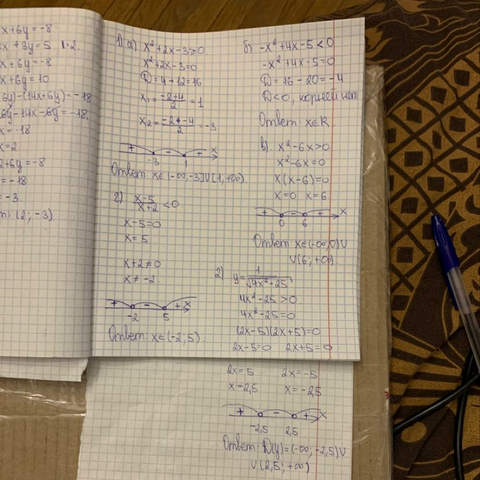 x+6y=-8
x+3y=5 |·2
x+6y=-8
x+6y=10
6y)-(14x+6y)=-18
6y-14x-6y=-18
x=-18
x=2
2+6y=-8
=-18
=-3
(2; -3)
1) а) x²+2x-3>0
x²+2x-3=0
D=4-12=16
x₁=(-2+4)/2=1
x₂=(-2-4)/2=-3
+ - + x
-3 1
Ответ: x∈(-∞,-3)∪(1,+∞)
г) (x-5)/(x+2)<0
x-5=0
x=5
x+2≠0
x≠-2
+ - + x
-2 5
Ответ: x∈(-2;5)
б) -x²+4x-5<0
-x²+4x-5=0
D=16-20=-4
D<0, корней нет
Ответ: x∈R
в) x²-6x>0
x²-6x=0
x(x-6)=0
x=0 x=6
+ - + x
0 6
Ответ: x∈(-∞,0)∪
∪(6;+∞)
2) y=1/√(4x²-25)
4x²-25>0
4x²-25=0
(2x-5)(2x+5)=0
2x-5=0 2x+5=0
2x=5 2x=-5
x=2,5 x=-2,5
+ - + x
-2,5 2,5
Ответ: D(y)=(-∞;-2,5)∪
∪(2,5;+∞)